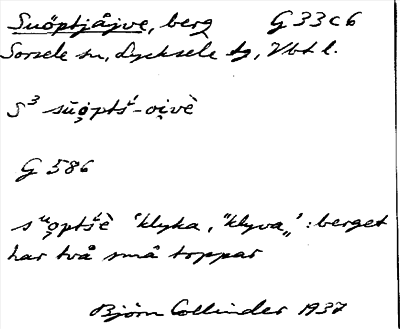 Suöptjåjve, berg G33c6
Sorsele sn, Lycksele tg, Vbt l.
S³
G 586
'klyka, "klyva„' : berget
har två små toppar
Björn Collinder 1937